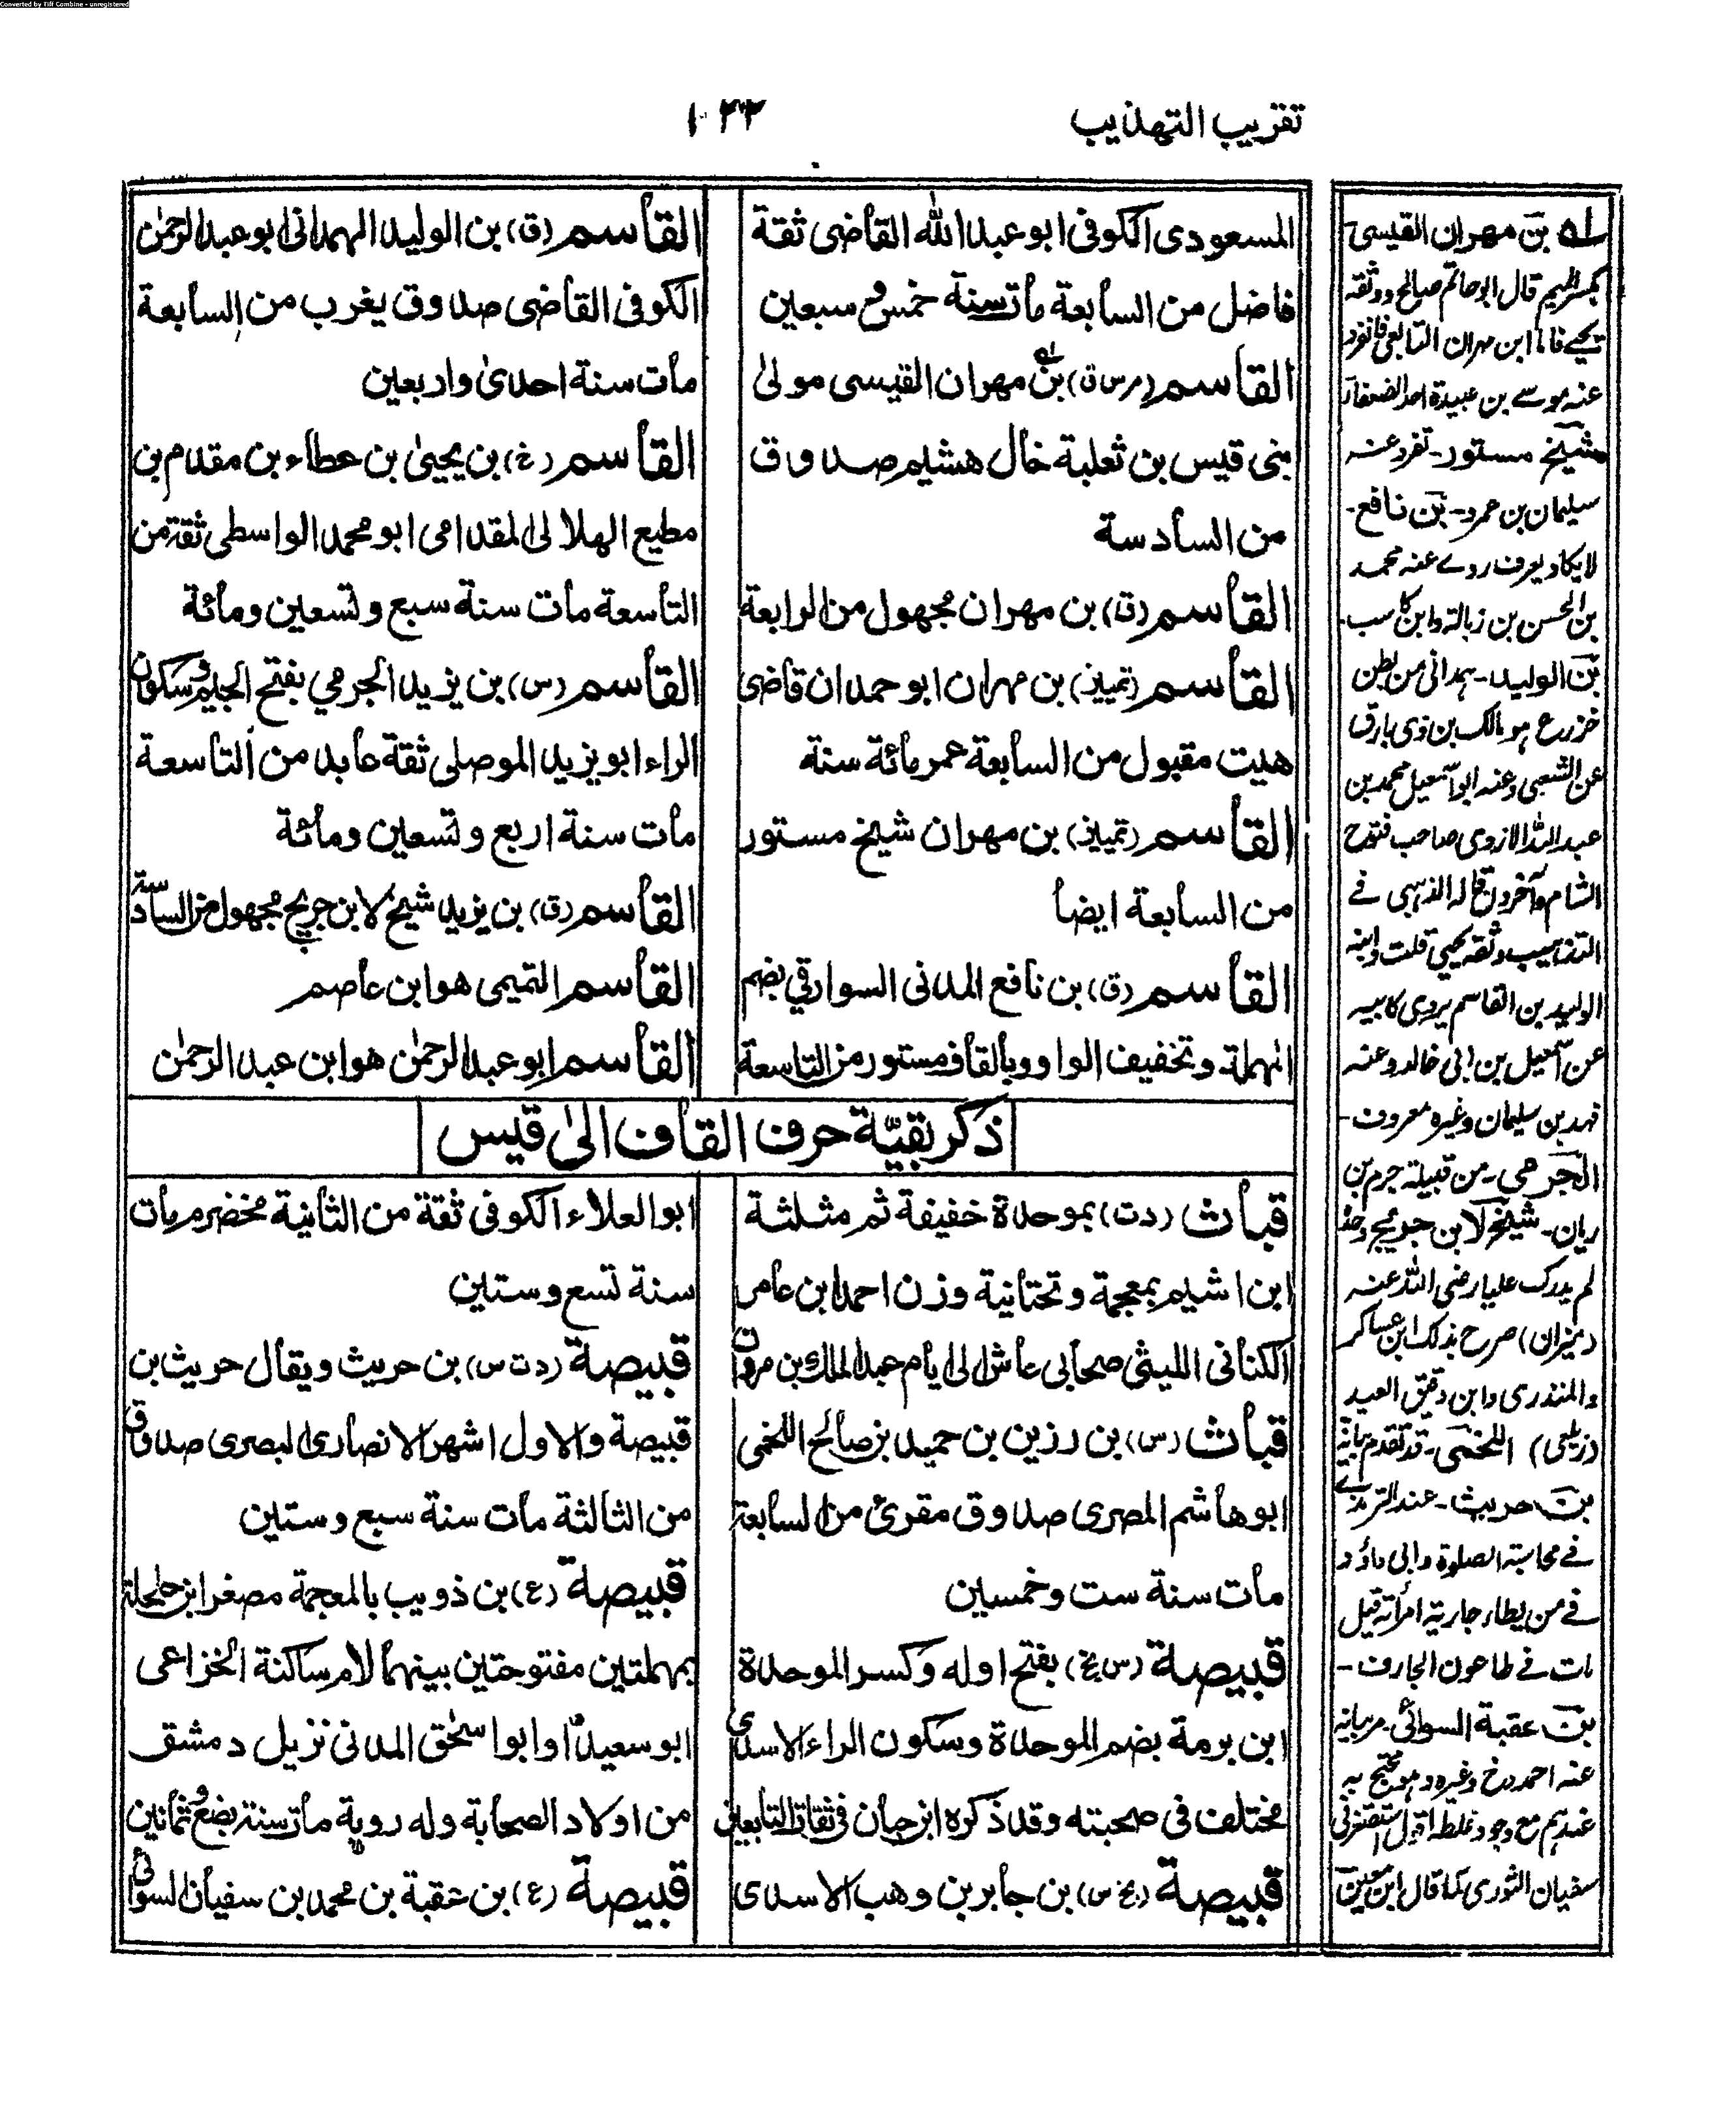 Converted by Tiff Combine - unregistered
تقريب التهذيب
١٠٢٢
المسعودى الكوفى ابو عبد الله القاضى ثقة
فاضل من السابعة مات سنة خمس و سبعين
القاسم (م س ق) بن مهران القيسى مولى
بنى قيس بن ثعلبة خال هشيم صدوق
من السادسة
القاسم (ق) بن مهران مجهول من الرابعة
القاسم (تمييز) بن مهران ابو حمدان قاضى
هيت مقبول من السابعة عمر مائة سنة
القاسم (تمييز) بن مهران شيخ مستور
من السابعة ايضا
القاسم (ق) بن نافع المدنى السوارقي بضم
المهملة وتخفيف الواو وبالقاف مستور من التاسعة
القاسم (ق) بن الوليد الهمدانى ابو عبد الرحمٰن
الكوفى القاضى صدوق يغرب من السابعة
مات سنة احدىٰ واربعين
القاسم (خ) بن يحيىٰ بن عطاء بن مقدم بن
مطيع الهلالى المقدامى ابو محمد الواسطى ثقة من
التاسعة مات سنة سبع وتسعين ومائة
القاسم (س) بن يزيد الجرمي بفتح الجيم وسكون
الراء ابو يزيد الموصلى ثقة عابد من التاسعة
مات سنة اربع وتسعين ومائة
القاسم (ق) بن يزيد شيخ لابن جريج مجهول من السادسة
القاسم التميمى هو ابن عاصم
القاسم ابو عبد الرحمٰن هو ابن عبد الرحمٰن
ذكر بقيّة حرف القاف الىٰ قيس
قباث (د ت) بموحدة خفيفة ثم مثلثة
ابن اشيم بمعجمة وتحتانية وزن احمد ابن عامر
الكنانى الليثى صحابى عاش الى ايام عبد الملك بن مروان
قباث (س) بن رزين بن حميد بن صالح اللخمى
ابو هاشم المصرى صدوق مقرئ من السابعة
مات سنة ست وخمسين
قبيصة (س بخ) بفتح اوله وكسر الموحدة
ابن برمة بضم الموحدة وسكون الراء الاسدى
مختلف فى صحبته وقد ذكره ابن حبان فى ثقات التابعين
قبيصة (بخ س) بن جابر بن وهب الاسدى
ابو العلاء الكوفى ثقة من الثانية مخضرم مات
سنة تسع وستين
قبيصة (د ت س) بن حريث ويقال حريث بن
قبيصة والاول اشهر الانصارى البصرى صدوق
من الثالثة مات سنة سبع وستين
قبيصة (ع) بن ذويب بالمعجمة مصغر ابن حلحلة
بمهملتين مفتوحتين بينهما لام ساكنة الخزاعى
ابو سعيد او ابو اسحٰق المدنى نزيل دمشق
من اولاد الصحابة وله روية مات سنة بضع و ثمانين
قبيصة (ع) بن عقبة بن محمد بن سفيان السوائى
له بن مهران القيسى
بكسر الميم قال ابو حاتم صالح ووثقه
يحيے فاما ابن مهران التابعى فانفرد
عنه موسے بن عبيدة احد الضعفاء
شيخ مستور - تفرد عنه
سليمان بن عمرو - بن نافع -
لا يكاد يعرف روے عنه محمد
بن الحسن بن زبالة وابن كاسب -
بن الوليد - همدانى من بطن
هو مالك بن ذى بارق
عن الشعبى وعنه ابو اسمعيل محمد بن
عبد الله الازدى صاحب فتوح
الشام وآخرون قاله الذهبى فے
التذهيب وثقه يحيى قلت وابنه
الوليد بن القاسم يروى كابيه
عن اسمعيل بن ابى خالد وعنه
فهد بن سليمان وغيره معروف -
الجرمي - من قبيلة جرم بن
ريان - شيخ لابن جريج وحده
لم يدرك عليا رضى الله عنه
(ميزان) صرح بذلك ابن عساكر
والمنذرى وابن دقيق العيد
(زيلعى) اللخمى - قد تقدم بيانه
بن حريث - عند الترمذے
فے محاسبة الصلوة وابى داؤد
فے من يطاء جارية امرأته قيل
مات فے طاعون الجارف -
بن عقبة السوائى - مر بيانه
عنه احمد وخ وغيره وهو محتج به
عندهم مع وجود غلطه اقول استصغر فى
سفيان الثورى كما قال ابن معين